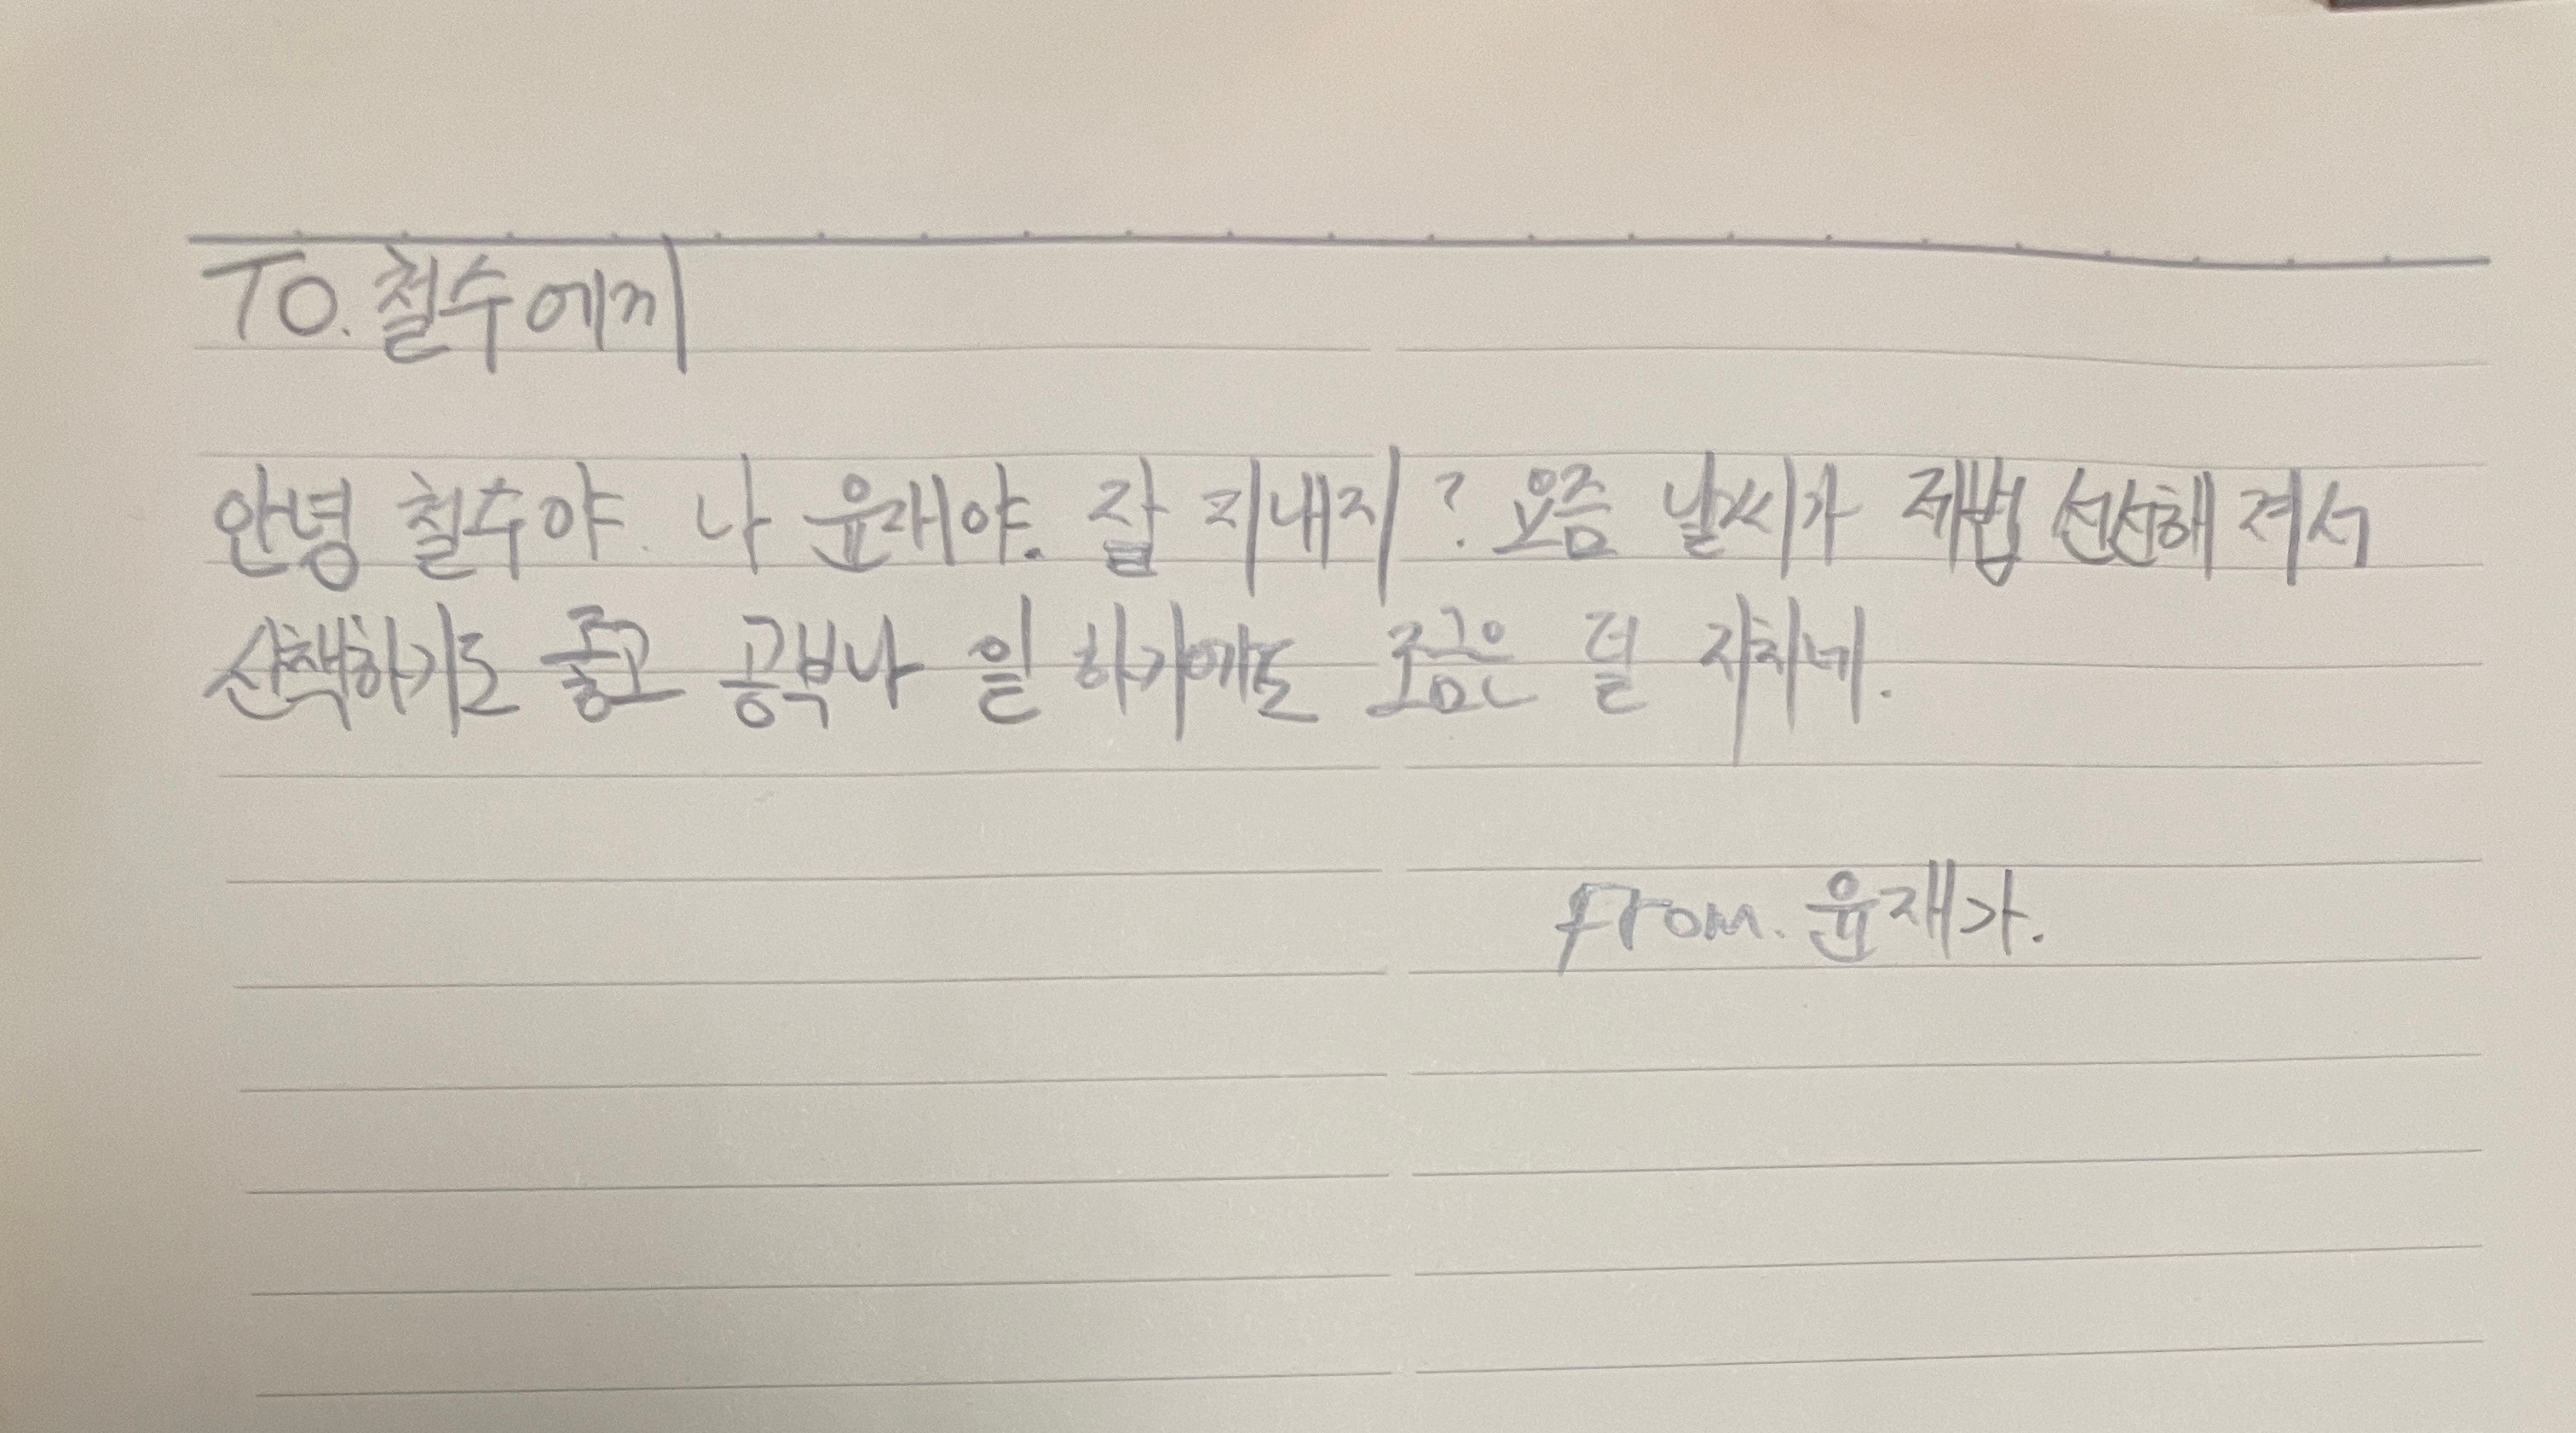 To. 철수에게
안녕 철수야. 나 윤재야. 잘 지내지? 요즘 날씨가 제법 선선해 져서
산책하기도 좋고 공부나 일 하기에도 조금은 덜 지치네.
From. 윤재가.